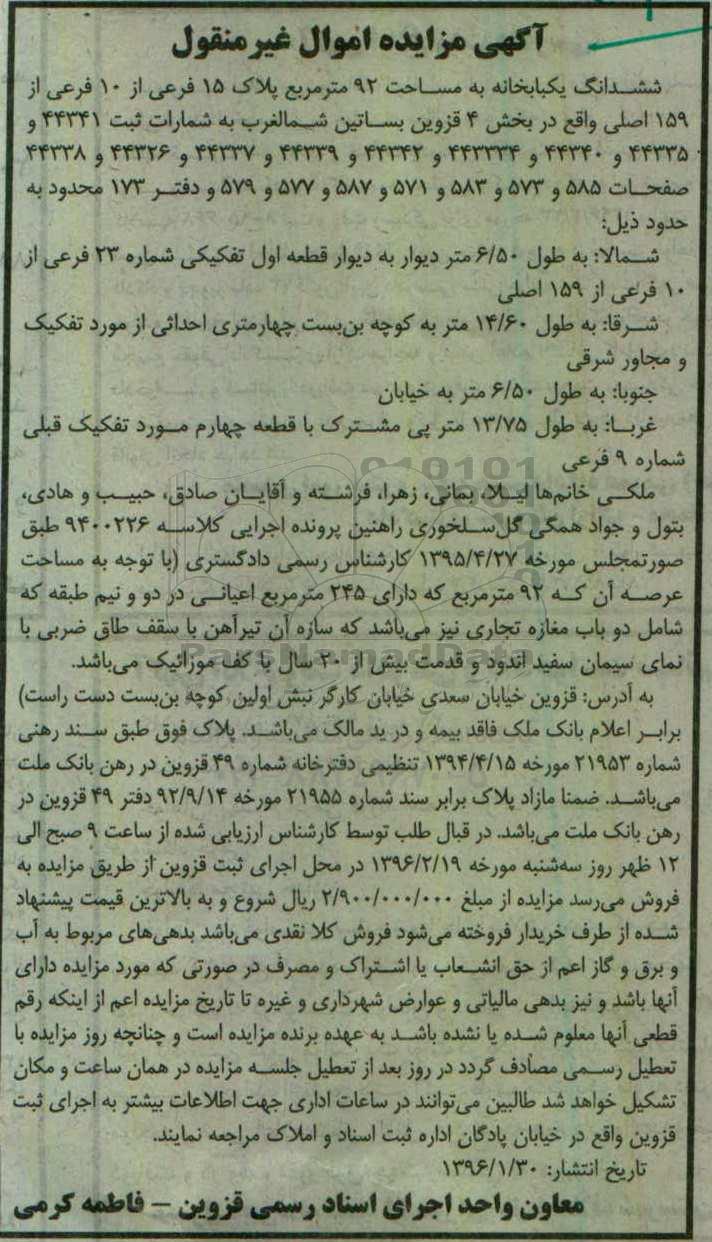 آگهی مزایده اموال غیرمنقول
ششدانگ یکبابخانه به مساحت ۹۲ مترمربع پلاک ۱۵ فرعی از ۱۰ فرعی از
۱۵۹ اصلی واقع در بخش ۴ قزوین بساتین شمالغرب به شمارات ثبت ۴۴۳۴۱ و
۴۴۳۳۵ و ۴۴۳۴۰ و ۴۴۳۳۳۴ و ۴۴۳۴۲ و ۴۴۳۳۹ و ۴۴۳۳۷ و ۴۴۳۲۶ و ۴۴۳۳۸
صفحات ۵۸۵ و ۵۷۳ و ۵۸۳ و ۵۷۱ و ۵۸۷ و ۵۷۷ و ۵۷۹ و دفتر ۱۷۳ محدود به
حدود ذیل:
شمالا: به طول ۶/۵۰ متر دیوار به دیوار قطعه اول تفکیکی شماره ۲۳ فرعی از
۱۰ فرعی از ۱۵۹ اصلی
شرقا: به طول ۱۴/۶۰ متر به کوچه بن‌بست چهارمتری احداثی از مورد تفکیک
و مجاور شرقی
جنوبا: به طول ۶/۵۰ متر به خیابان
غربا: به طول ۱۳/۷۵ متر پی مشترک با قطعه چهارم مورد تفکیک قبلی
شماره ۹ فرعی
ملکی خانم‌ها لیلا، بمانی، زهرا، فرشته و آقایان صادق، حبیب و هادی،
بتول و جواد همگی گل‌سلخوری راهنین پرونده اجرایی کلاسه ۹۴۰۰۲۲۶ طبق
صورتمجلس مورخه ۱۳۹۵/۴/۲۷ کارشناس رسمی دادگستری (با توجه به مساحت
عرصه آن که ۹۲ مترمربع که دارای ۲۴۵ مترمربع اعیانی در دو و نیم طبقه که
شامل دو باب مغازه تجاری نیز می‌باشد که سازه آن تیرآهن با سقف طاق ضربی با
نمای سیمان سفید اندود و قدمت بیش از ۲۰ سال با کف موزائیک می‌باشد.
به آدرس: قزوین خیابان سعدی خیابان کارگر نبش اولین کوچه بن‌بست دست راست)
برابر اعلام بانک ملک فاقد بیمه و در ید مالک می‌باشد. پلاک فوق طبق سند رهنی
شماره ۲۱۹۵۳ مورخه ۱۳۹۴/۴/۱۵ تنظیمی دفترخانه شماره ۴۹ قزوین در رهن بانک ملت
می‌باشد. ضمنا مازاد پلاک برابر سند شماره ۲۱۹۵۵ مورخه ۹۲/۹/۱۴ دفتر ۴۹ قزوین در
رهن بانک ملت می‌باشد. در قبال طلب توسط کارشناس ارزیابی شده از ساعت ۹ صبح الی
۱۲ ظهر روز سه‌شنبه مورخه ۱۳۹۶/۲/۱۹ در محل اجرای ثبت قزوین از طریق مزایده به
فروش می‌رسد مزایده از مبلغ ۲/۹۰۰/۰۰۰/۰۰۰ ریال شروع و به بالاترین قیمت پیشنهاد
شده از طرف خریدار فروخته می‌شود فروش کلا نقدی می‌باشد بدهی‌های مربوط به آب
و برق و گاز اعم از حق انشعاب یا اشتراک و مصرف در صورتی که مورد مزایده دارای
آنها باشد و نیز بدهی مالیاتی و عوارض شهرداری و غیره تا تاریخ مزایده اعم از اینکه رقم
قطعی آنها معلوم شده یا نشده باشد به عهده برنده مزایده است و چنانچه روز مزایده با
تعطیل رسمی مصادف گردد در روز بعد از تعطیل جلسه مزایده در همان ساعت و مکان
تشکیل خواهد شد طالبین می‌توانند در ساعات اداری جهت اطلاعات بیشتر به اجرای ثبت
قزوین واقع در خیابان پادگان اداره ثبت اسناد و املاک مراجعه نمایند.
تاریخ انتشار: ۱۳۹۶/۱/۳۰
معاون واحد اجرای اسناد رسمی قزوین – فاطمه کرمی
ParsNamadData